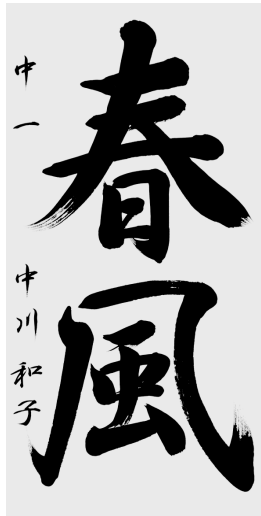 春風
中一 中川和子